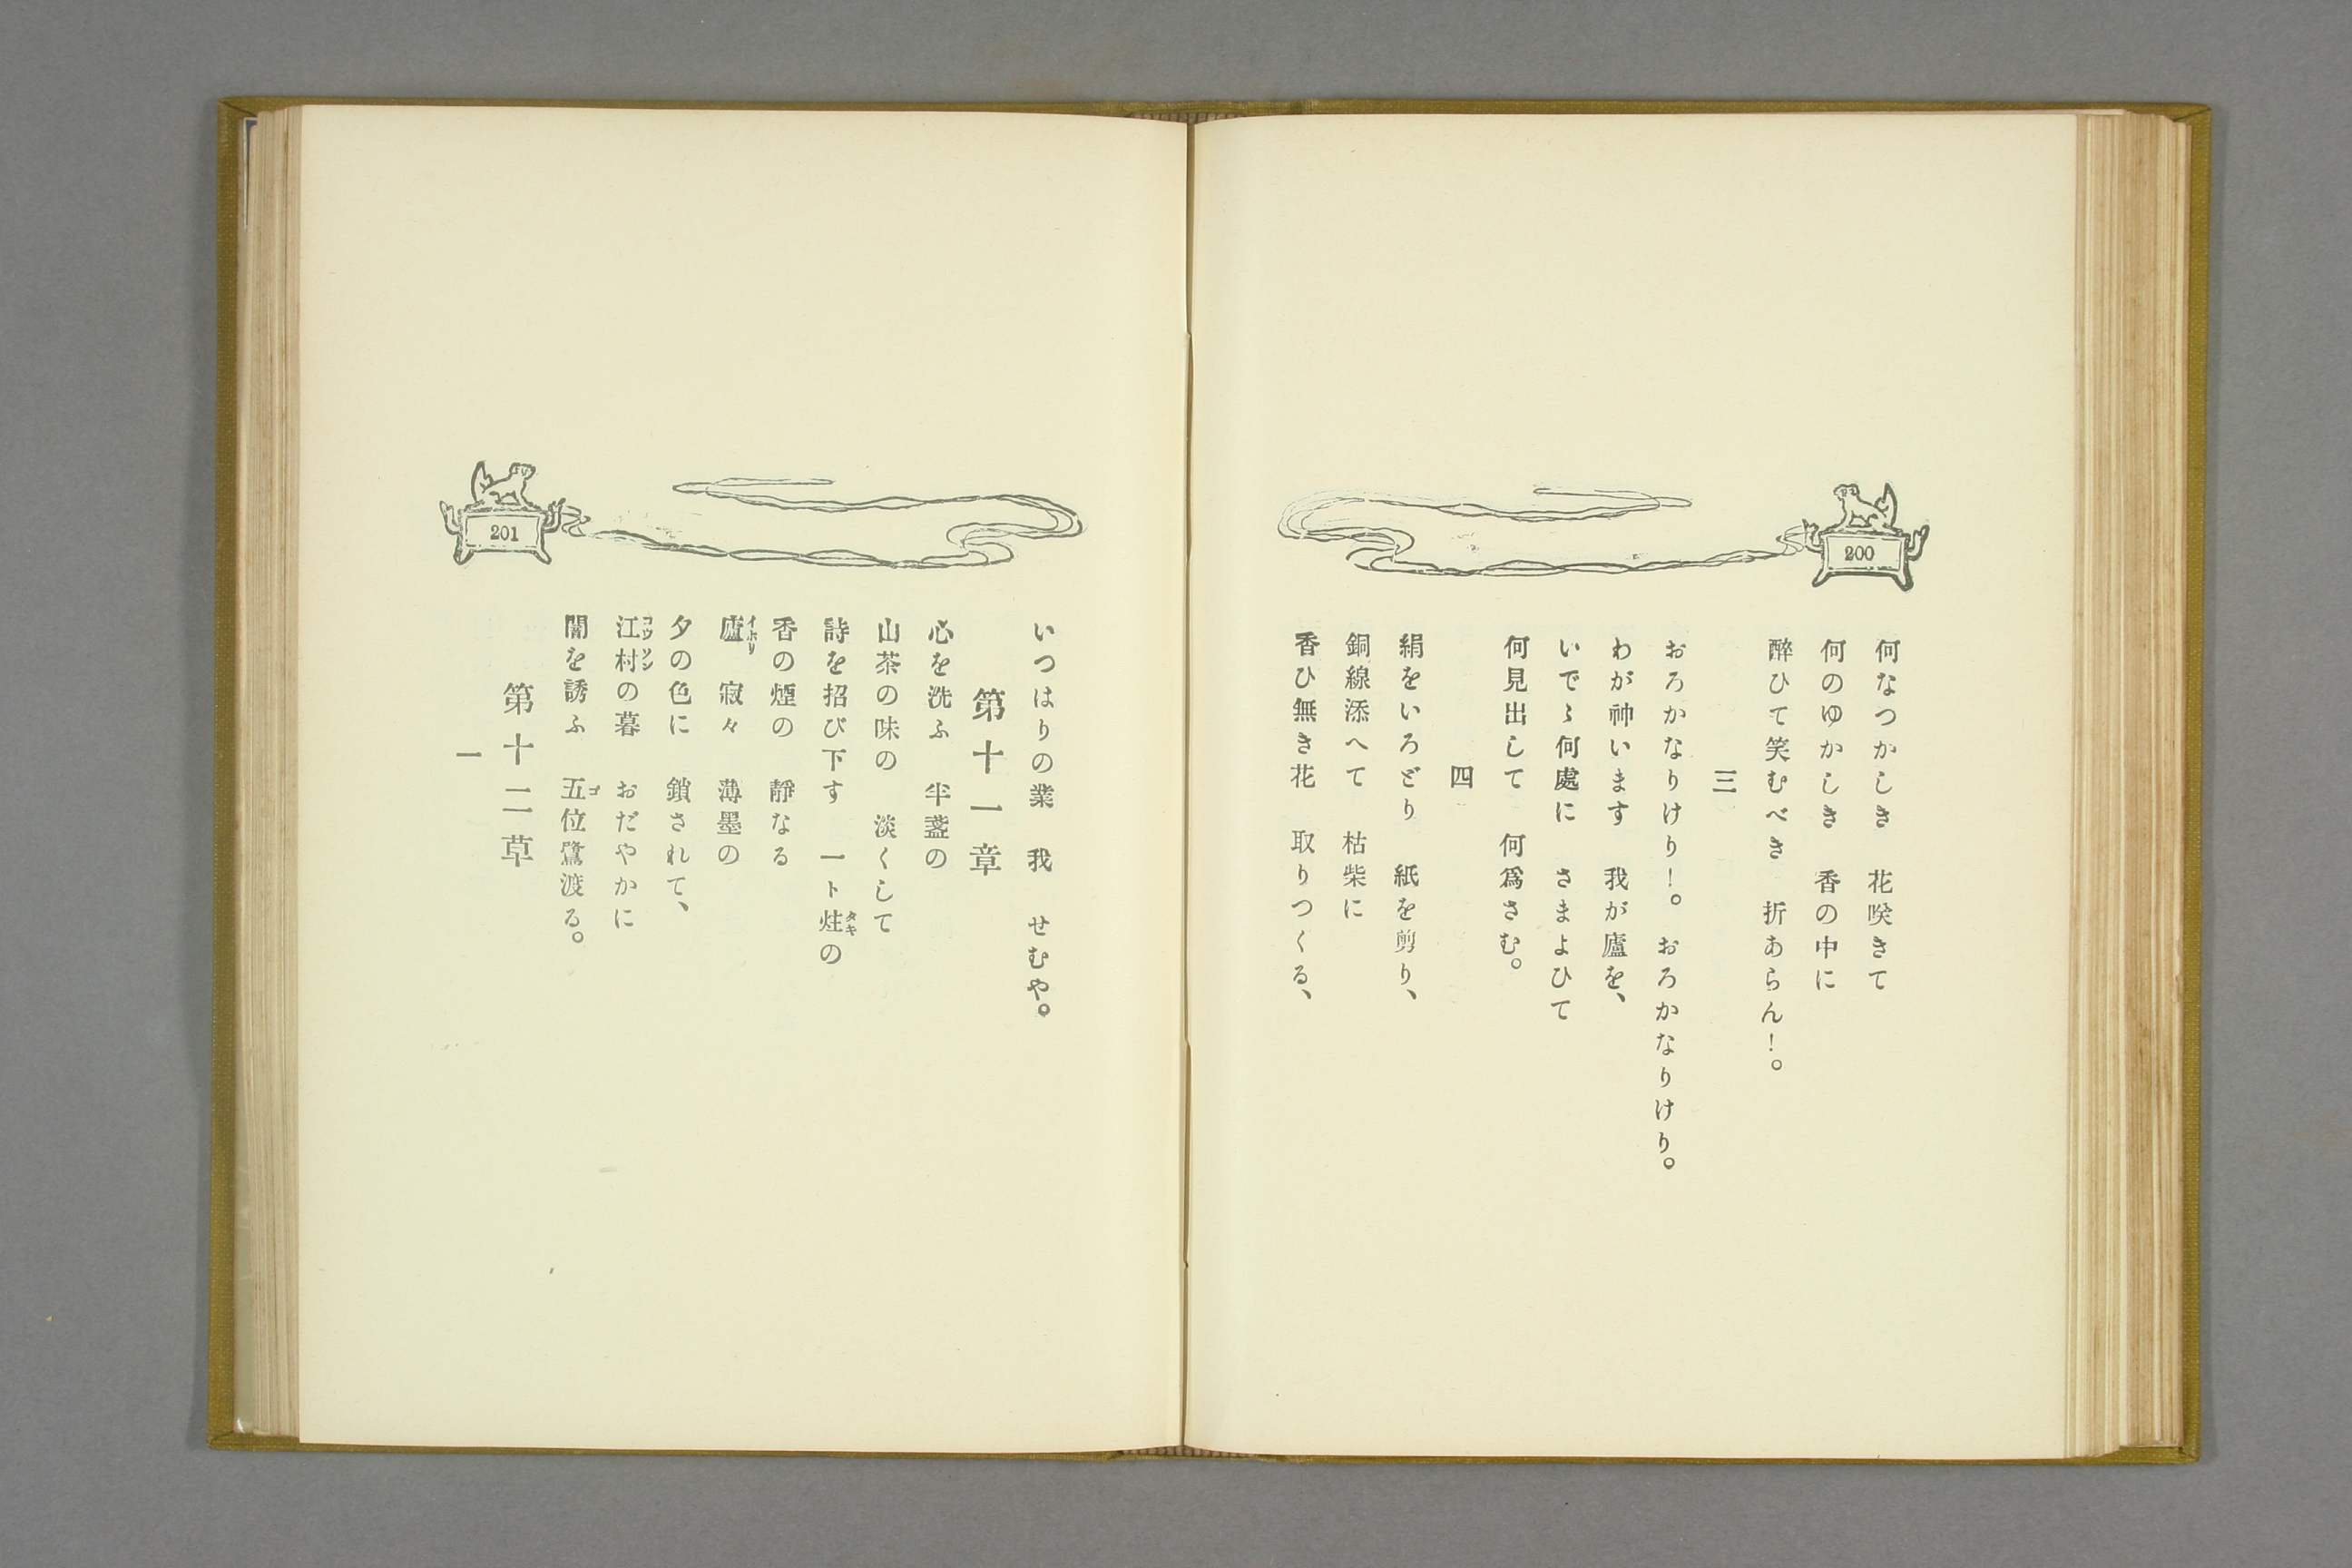 200
何なつかしき　花咲きて
何のゆかしき　香の中に
醉ひて笑むべき　折あらん！。
三
おろかなりけり！。おろかなりけり。
わが神います　我が廬を、
いでゝ何處に　さまよひて
何見出して　何爲さむ。
四
絹をいろどり　紙を剪り、
銅線添へて　枯柴に
香ひ無き花　取りつくる、
201
いつはりの業　我　せむや。
第十一章
心を洗ふ　半盞の
山茶の味の　淡くして
詩を招び下す　一ト炷タキの
香の煙の　靜なる
廬イホリ　寂々　薄墨の
夕の色に　鎖されて、
江村コウソンの暮　おだやかに
闇を誘ふ　五ゴ位鷺渡る。
第十二草
一